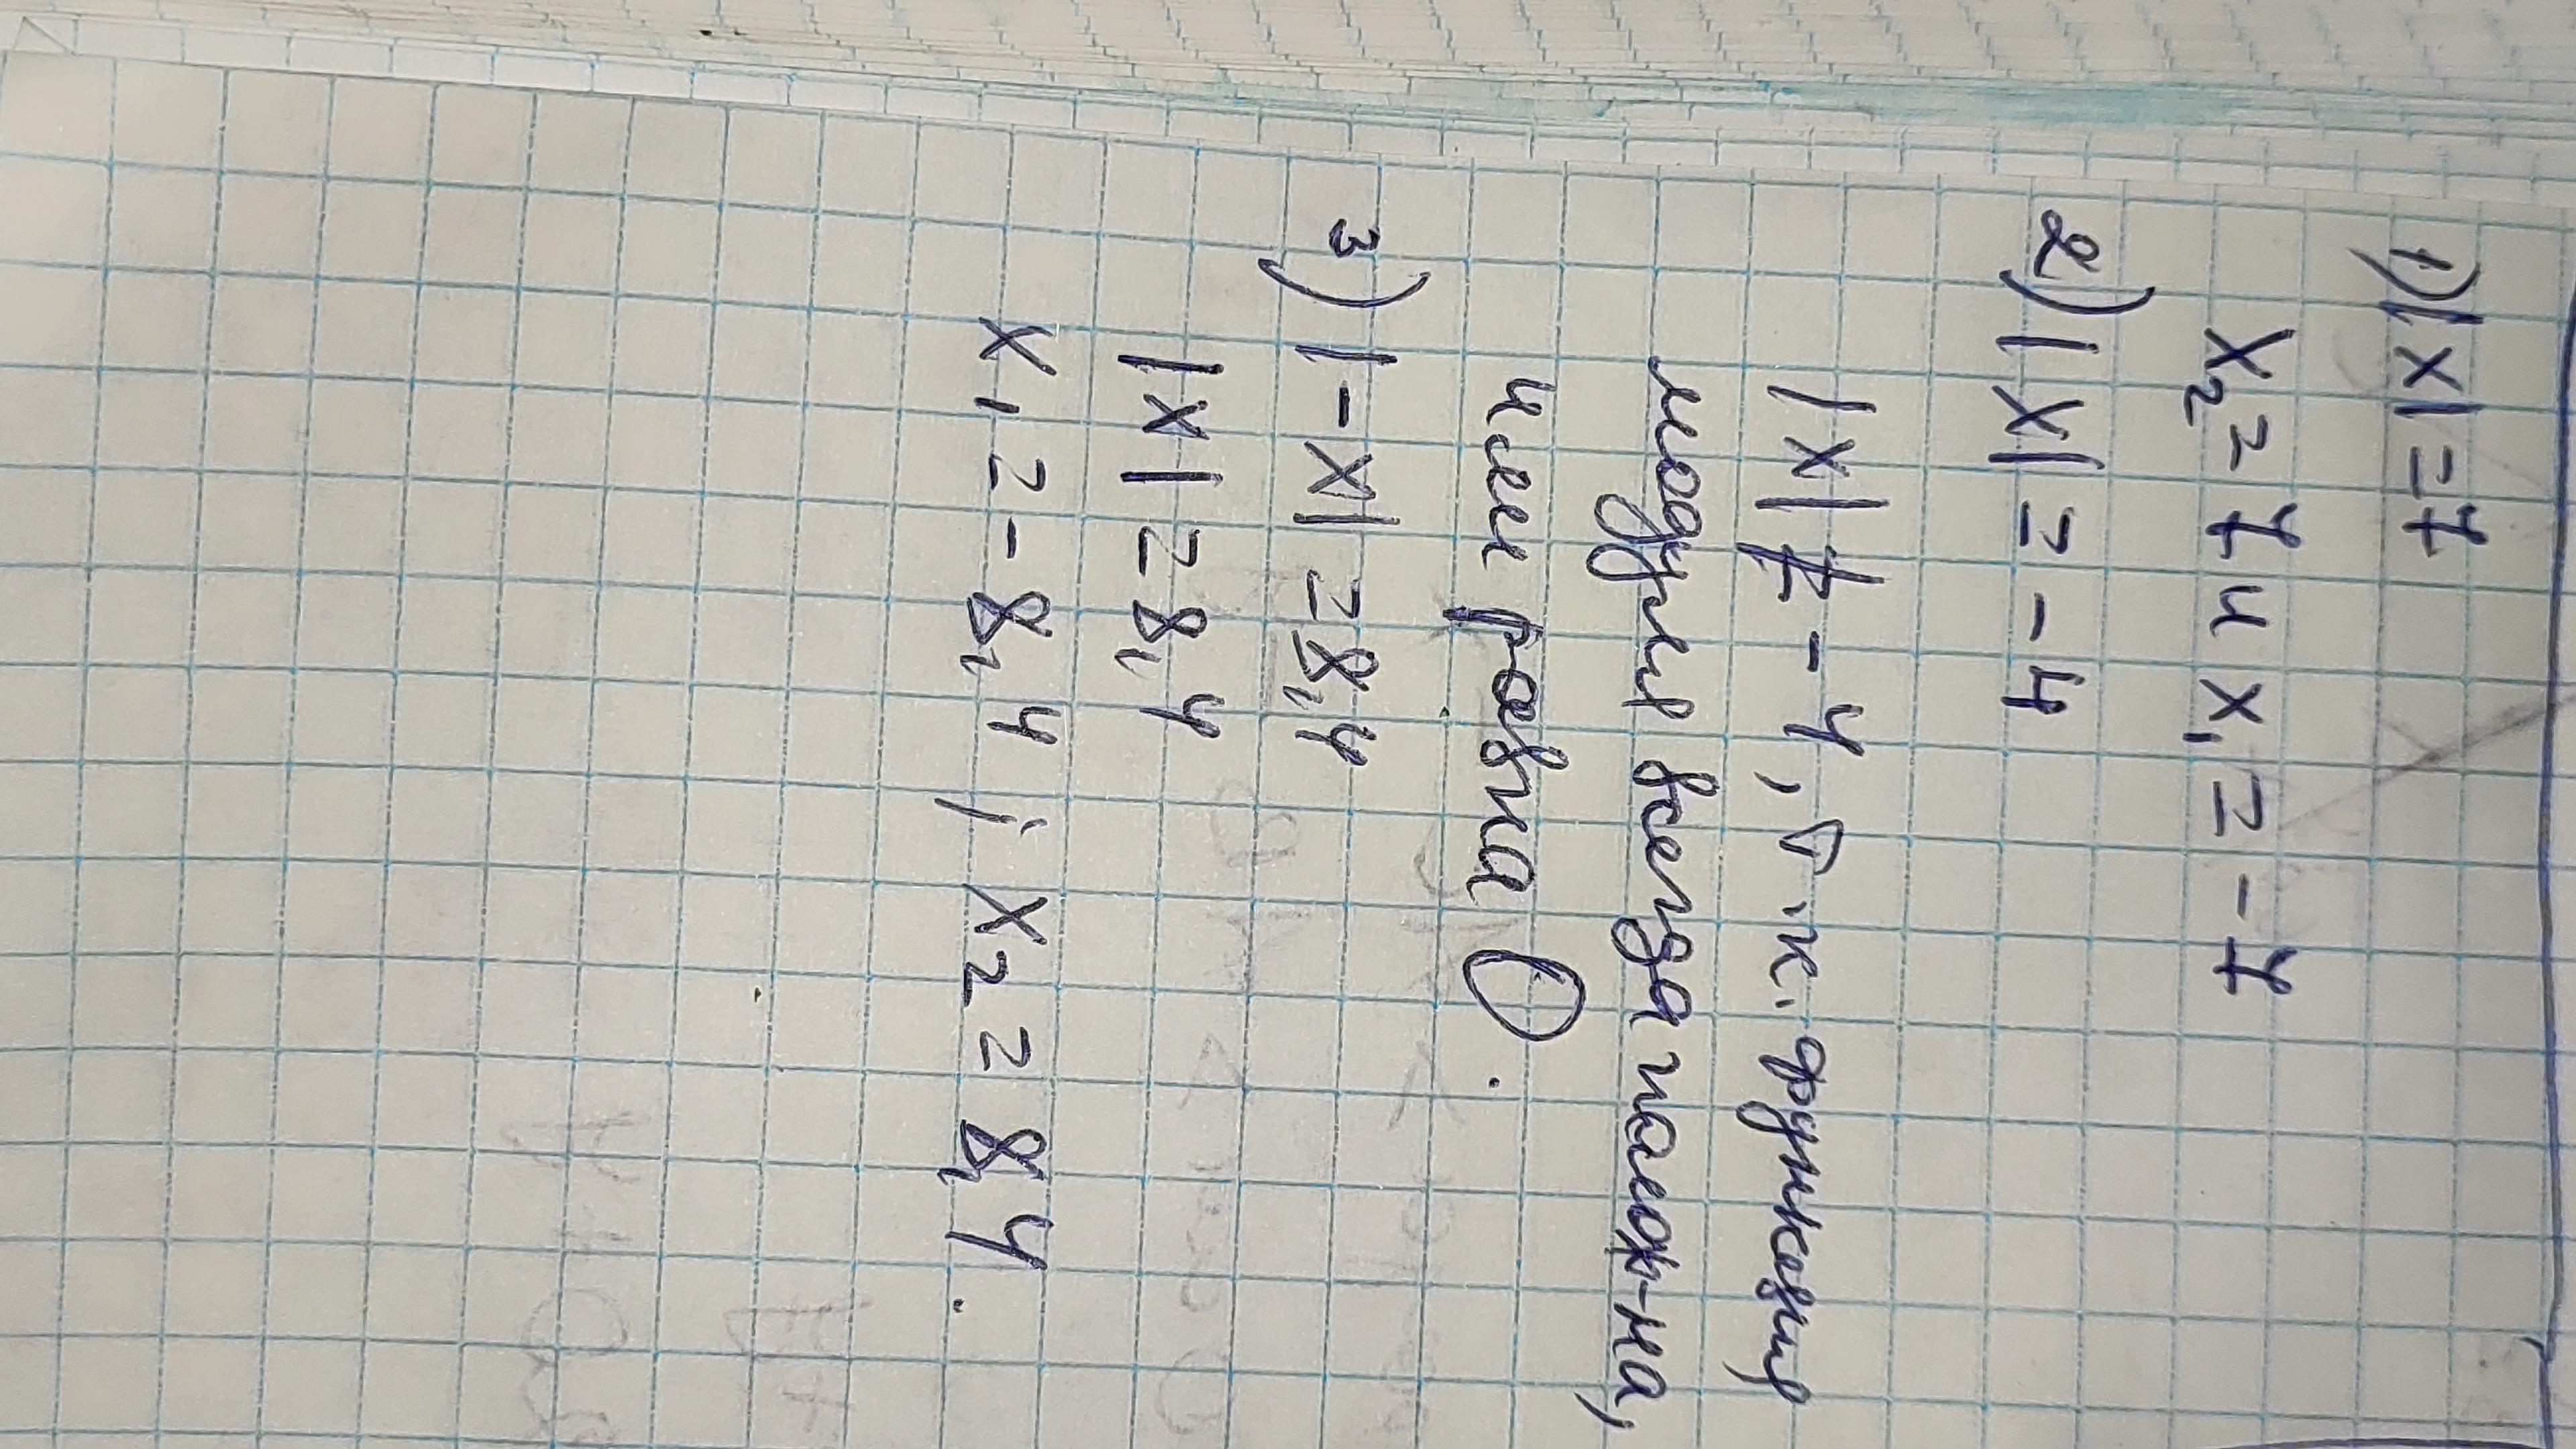 1) |x| = 7
x₂ = 7 и x₁ = -7
2) |x| = -4
|x| ≠ -4, т.к. функция
модуля всегда полож-на,
или равна 0.
3) |-x| = 8,4
|x| = 8,4
x₁ = -8,4; x₂ = 8,4.